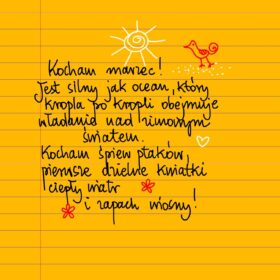 Kocham marzec!
Jest silny jak ocean, który
kropla po kropli obejmuje
władanie nad zimowym
światem.
Kocham śpiew ptaków,
pierwsze dzielne kwiatki
ciepły wiatr
i zapach wiosny!